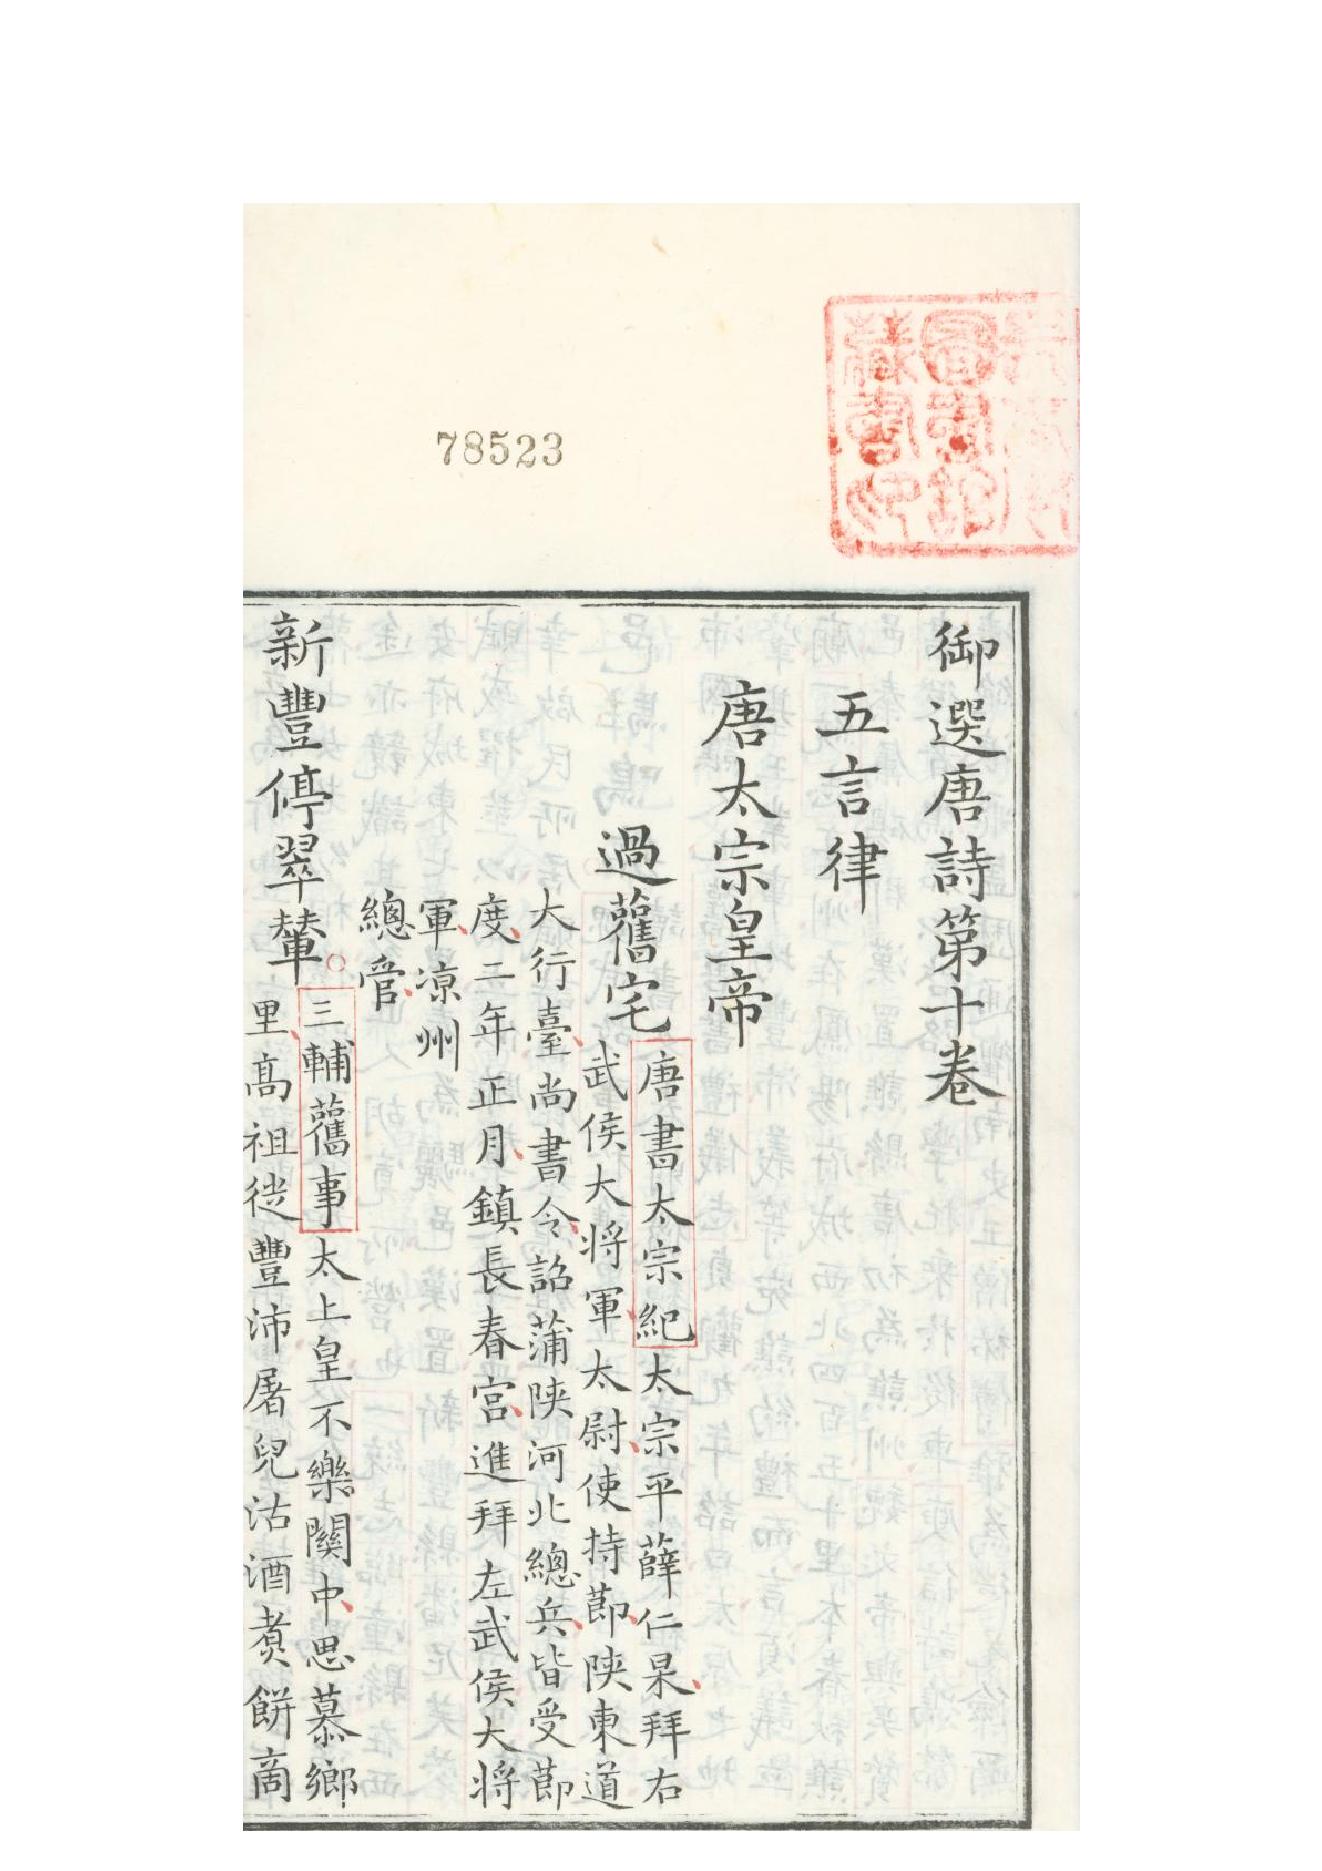 78523
圖書館
藏書印
御選唐詩第十卷
五言律
唐太宗皇帝
過舊宅唐書太宗紀太宗平薛仁杲拜右
武侯大将軍太尉使持節陝東道
大行臺尚書令詔蒲陝河北總兵皆受節
度二年正月鎮長春宮進拜左武侯大将
軍凉州
總管
新豐停翠輦○三輔舊事太上皇不樂關中思慕鄉
里高祖徙豐沛屠兒沽酒煮餅商